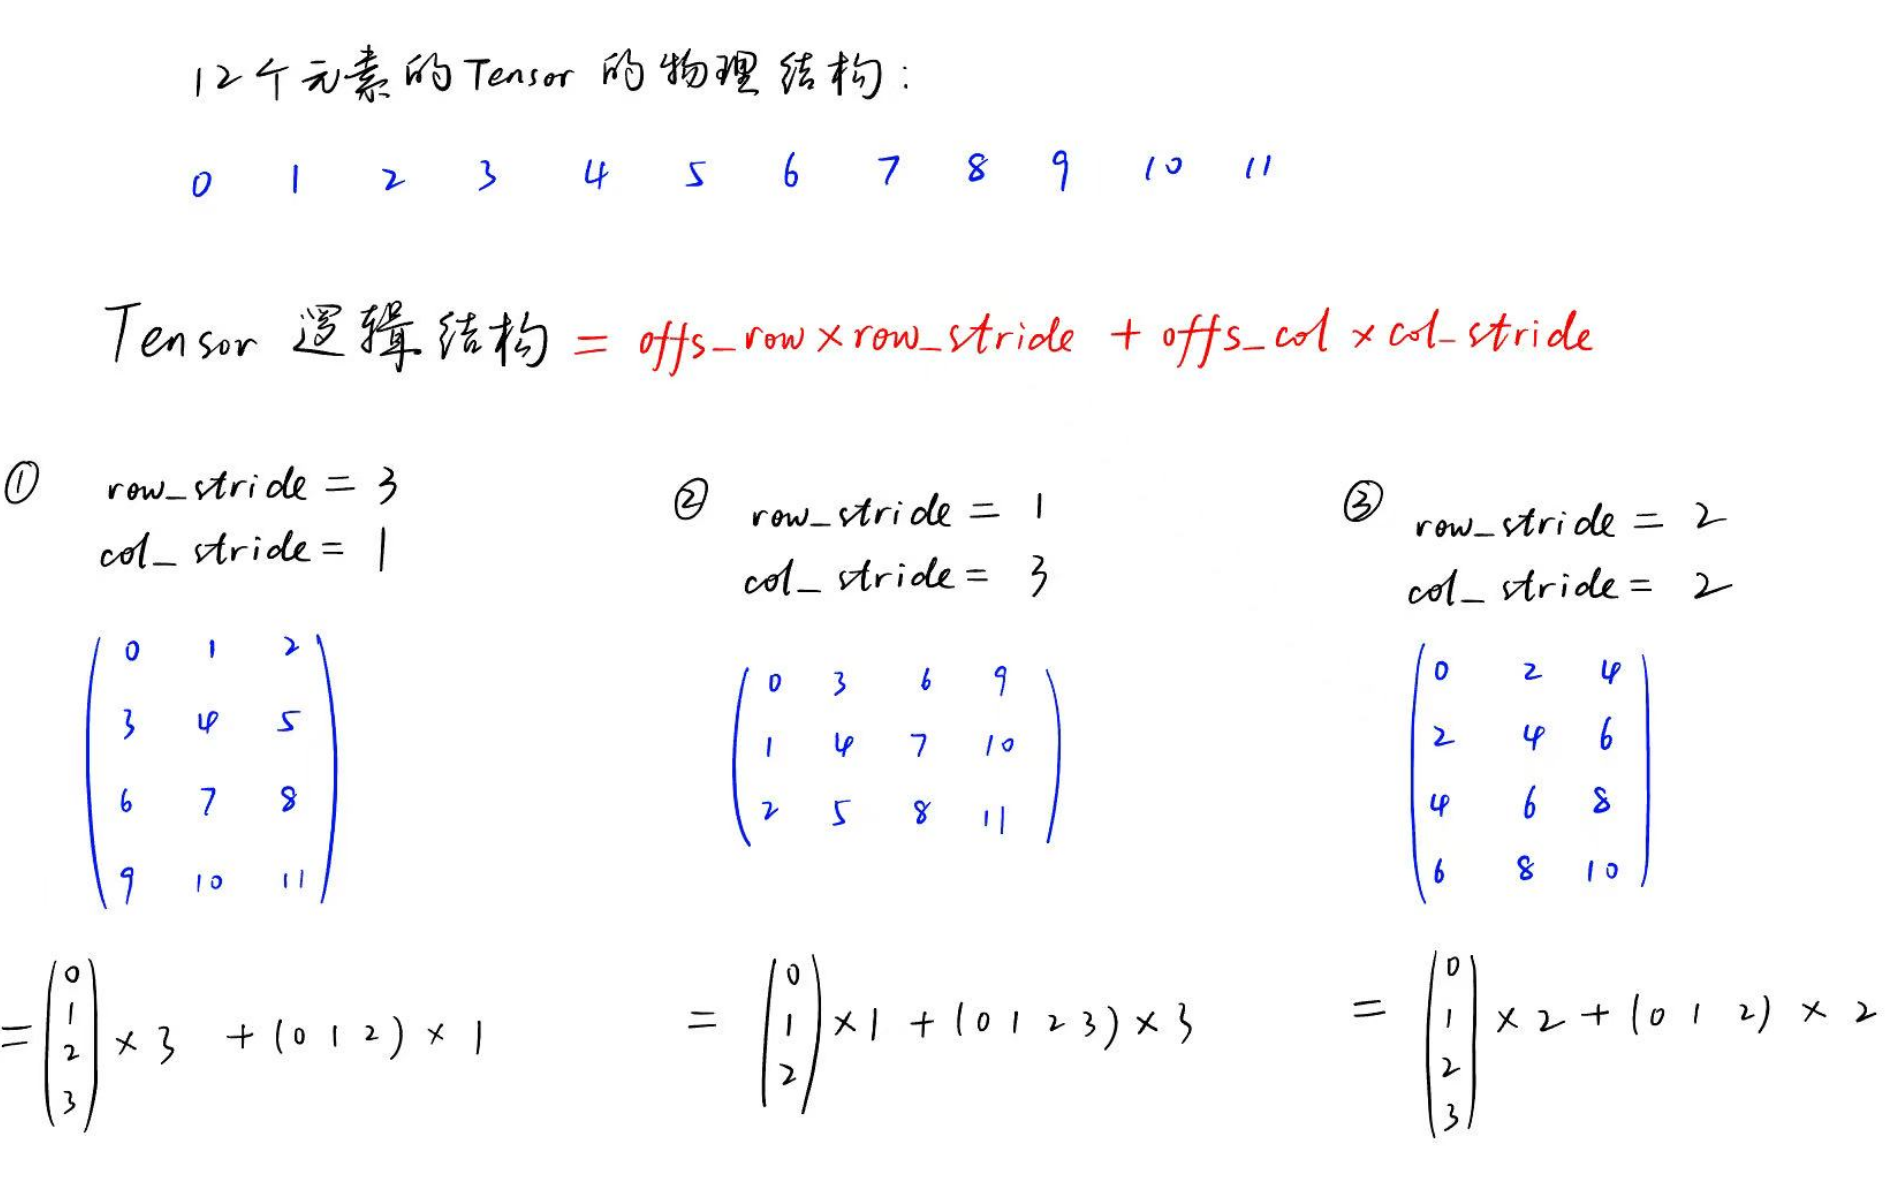 12个元素的Tensor的物理结构:
0 1 2 3 4 5 6 7 8 9 10 11
Tensor 逻辑结构 = offs_row × row_stride + offs_col × col_stride
① row_stride = 3
col_stride = 1
0 1 2
3 4 5
6 7 8
9 10 11
= (0 1 2 3) × 3 + (0 1 2) × 1
② row_stride = 1
col_stride = 3
0 3 6 9
1 4 7 10
2 5 8 11
= (0 1 2) × 1 + (0 1 2 3) × 3
③ row_stride = 2
col_stride = 2
0 2 4
2 4 6
4 6 8
6 8 10
= (0 1 2 3) × 2 + (0 1 2) × 2